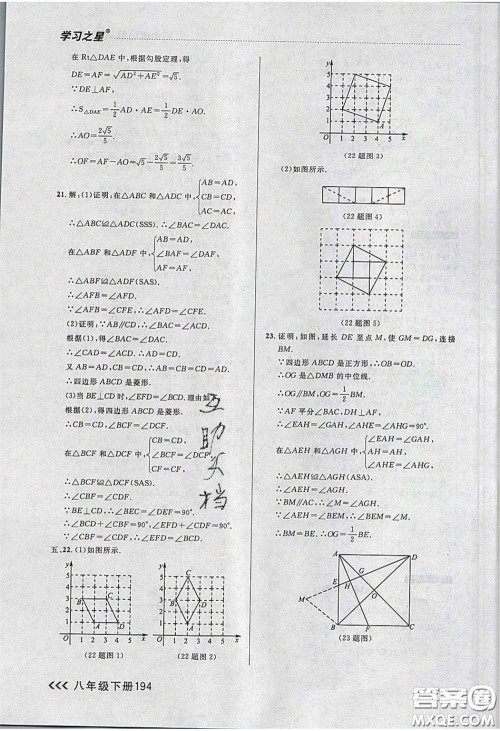 学习之星
在 Rt△DAE 中，根据勾股定理，得
DE=AF=√(AD²+AE²)=√5.
∵DE⊥AF，
∴S△DAE=1/2 AD·AE=1/2 DE·AO.
∴AO=2√5/5.
∴OF=AF-AO=√5-2√5/5=3√5/5.
21. 解：(1)证明：在△ABC 和△ADC 中，{AB=AD, CB=CD, AC=AC,
∴△ABC≌△ADC(SSS). ∴∠BAC=∠DAC.
在△ABF 和△ADF 中，{AB=AD, ∠BAF=∠DAF, AF=AF,
∴△ABF≌△ADF(SAS).
∴∠AFB=∠AFD.
∵∠AFB=∠CFE，∴∠AFD=∠CFE.
(2)证明：∵AB∥CD，∴∠BAC=∠ACD.
根据(1)，得∠BAC=∠DAC.
∴∠CAD=∠ACD. ∴AD=CD.
又 AB=AD，CB=CD，∴AB=CB=CD=AD.
∴四边形 ABCD 是菱形.
(3)当 BE⊥CD 时，∠EFD=∠BCD. 理由如下：
根据(2)，得四边形 ABCD 是菱形.
∴CB=CD，∠BCF=∠DCF.
在△BCF 和△DCF 中，{CB=CD, ∠BCF=∠DCF, CF=CF,
∴△BCF≌△DCF(SAS).
∴∠CBF=∠CDF.
∵BE⊥CD，∴∠BEC=∠DEF=90°.
∴∠BCD+∠CBF=90°，∠EFD+∠CDF=90°.
∴∠EFD=∠BCD.
五、22. (1)如图所示.
(22题图1)
(22题图2)
八年级下册194
(22题图3)
(2)如图所示.
(22题图4)
(22题图5)
23. 证明：如图，延长 DE 至点 M，使 GM=DG，连接
BM.
∵四边形 ABCD 是正方形，∴OB=OD.
∴OG 是△DBM 的中位线.
∴OG∥BM，OG=1/2 BM.
∵AF 平分∠BAC，DH⊥AF，
∴∠EAH=∠GAH，∠AHE=∠AHG=90°.
在△AEH 和△AGH 中，{∠EAH=∠GAH, AH=AH, ∠AHE=∠AHG,
∴△AEH≌△AGH(ASA).
∴∠AEH=∠AGH.
∵BM∥AC，∴∠M=∠AGH.
∵∠AEH=∠BEM，∴∠M=∠BEM.
∴BM=BE. ∴OG=1/2 BE.
(23题图)
互助文档
答案圈
MXQE.COM